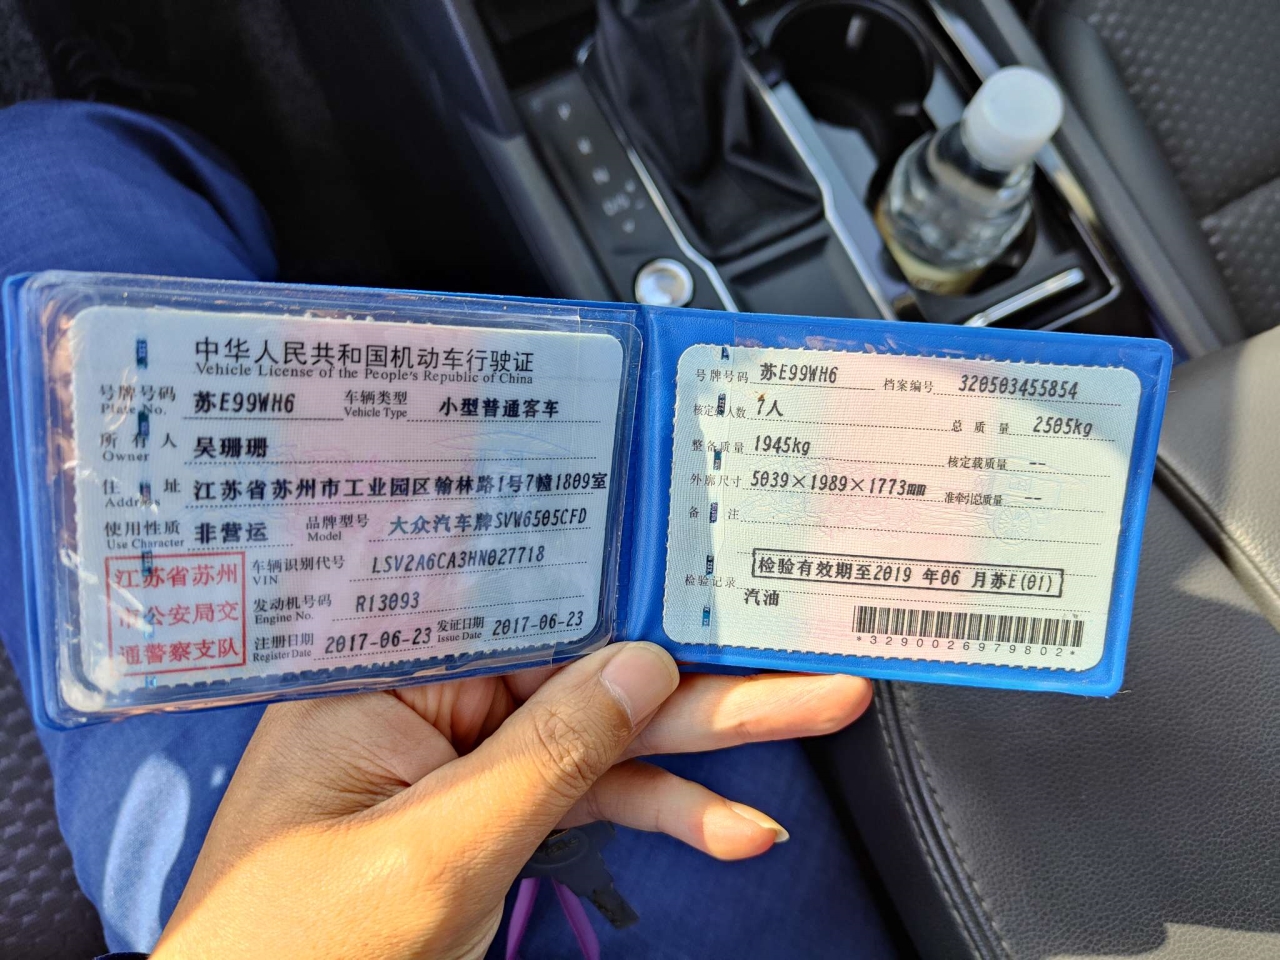 中华人民共和国机动车行驶证
Vehicle License of the People's Republic of China
号牌号码 苏E99WH6 车辆类型 小型普通客车
Plate No. Vehicle Type
所有人 吴珊珊
Owner
住址 江苏省苏州市工业园区翰林路1号7幢1809室
Address
使用性质 非营运 品牌型号 大众汽车牌SVW6505CFD
Use Character Model
江苏省苏州
市公安局交
通警察支队
车辆识别代号 LSV2A6CA3HN027718
VIN
发动机号码 R13093
Engine No.
注册日期 2017-06-23 发证日期 2017-06-23
Register Date Issue Date
号牌号码 苏E99WH6 档案编号 320503455854
核定载人数 7人 总质量 2505kg
整备质量 1945kg 核定载质量 --
外廓尺寸 5039×1989×1773mm 准牵引总质量 --
备注
检验记录 检验有效期至2019 年06 月苏E(01)
汽油
*3290026979802*